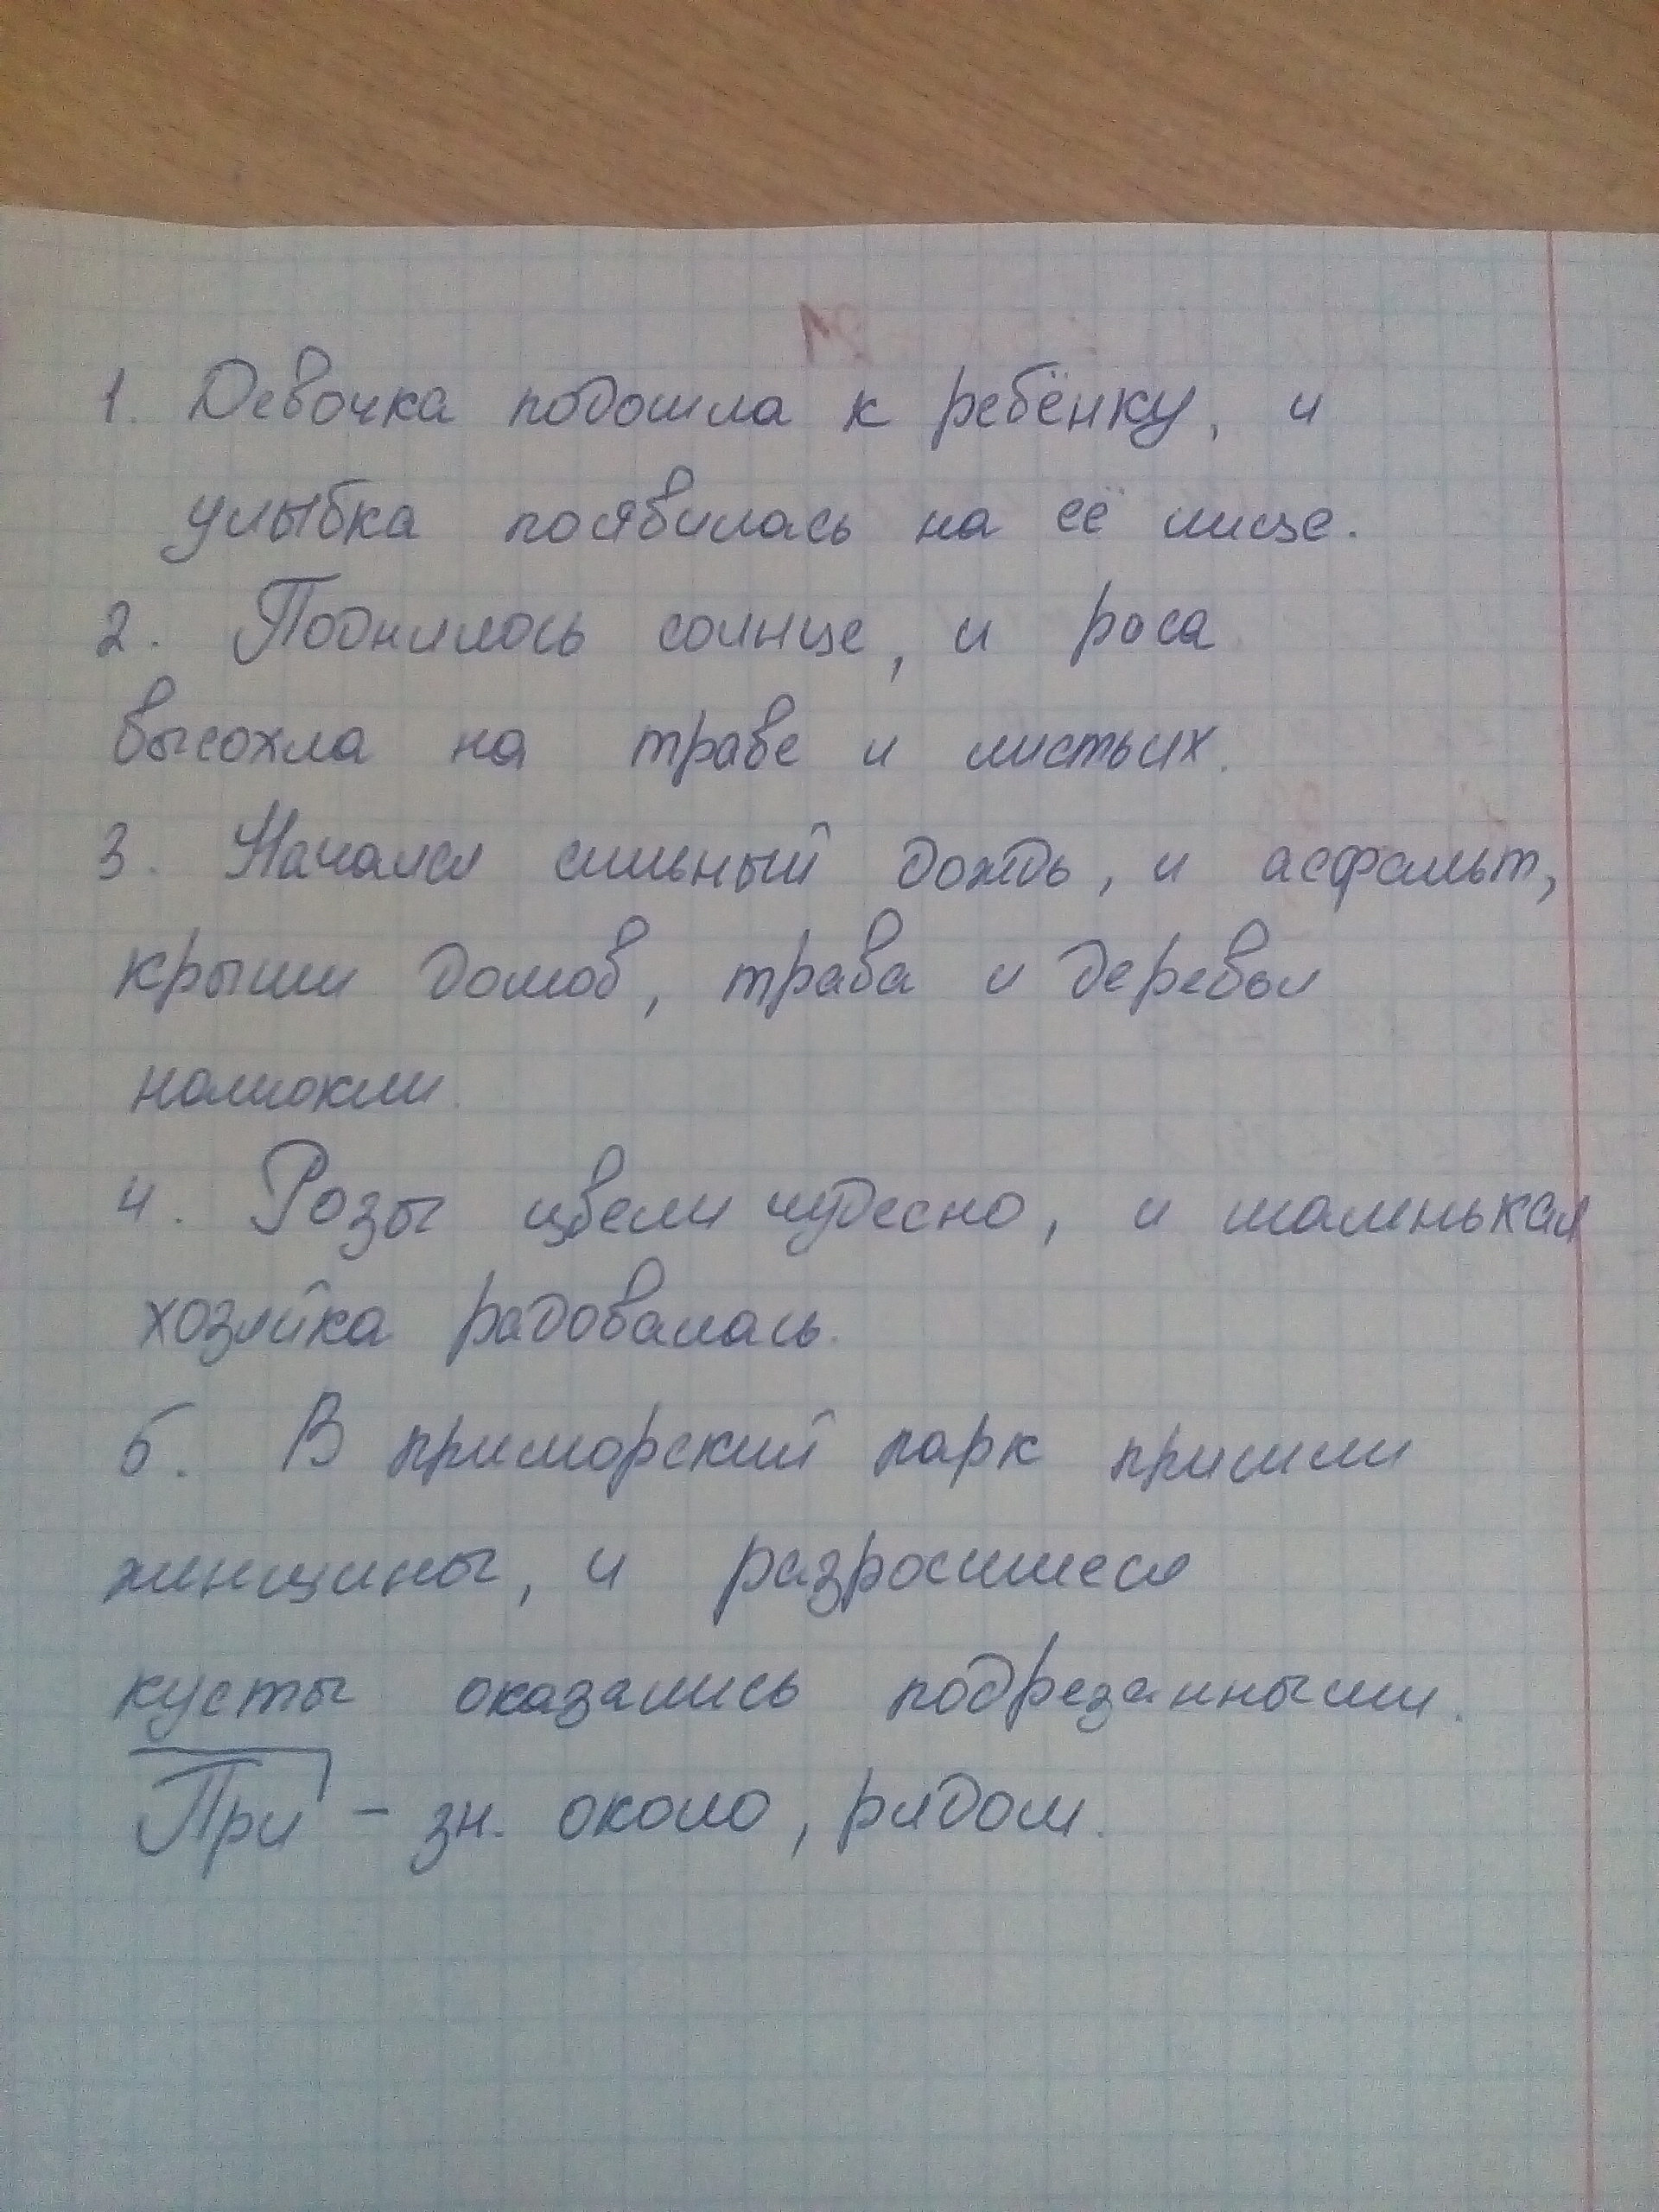 1. Девочка подошла к ребёнку, и
улыбка появилась на её лице.
2. Поднялось солнце, и роса
высохла на траве и листьях.
3. Начался сильный дождь, и асфальт,
крыши домов, трава и деревья
намокли.
4. Розы цвели чудесно, и маленькая
хозяйка радовалась.
5. В приморский парк пришли
женщины, и разросшиеся
кусты оказались подрезанными.
При - зн. около, рядом.